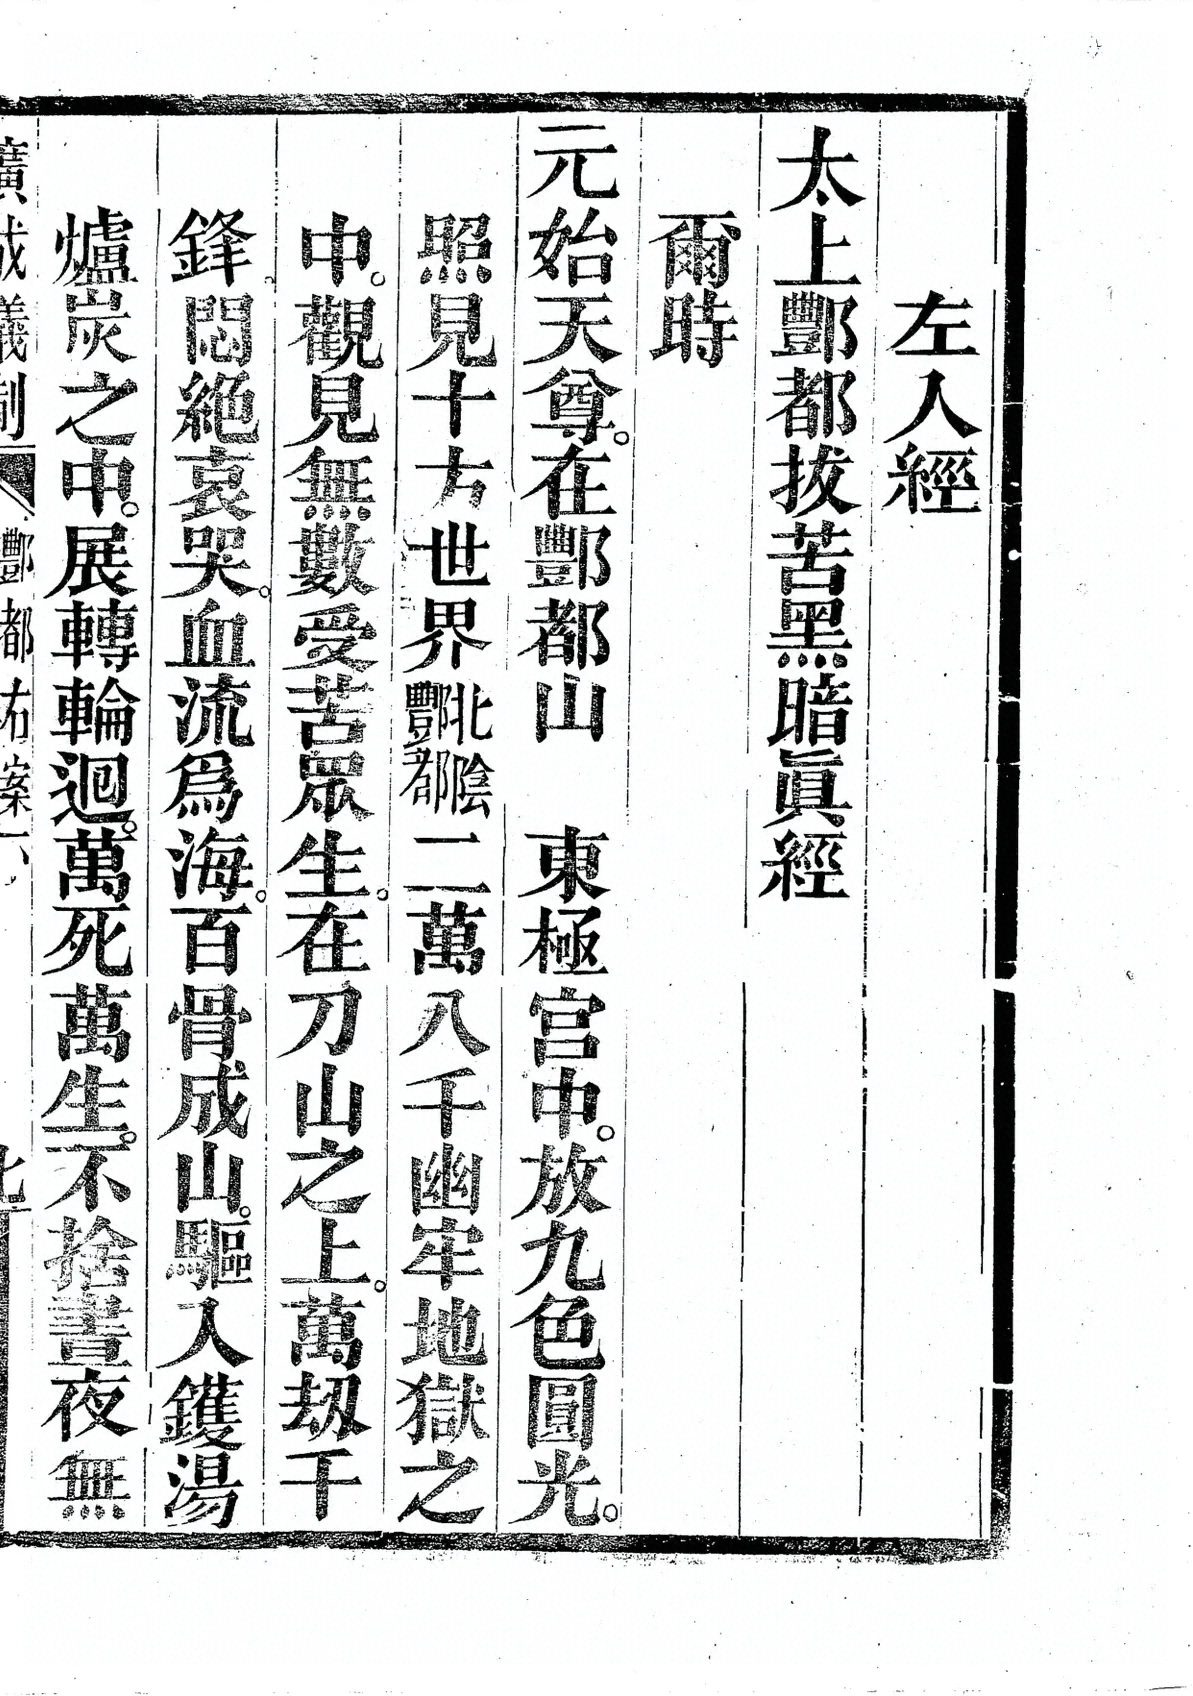 左人經
太上酆都拔苦黑暗眞經
爾時
元始天尊。在酆都山　東極宮中。放九色圓光。
照見十方世界北陰酆都二萬八千幽牢地獄之
中。觀見無數受苦眾生。在刀山之上。萬刼千
鋒。悶絕哀哭。血流爲海。百骨成山。驅入鑊湯
爐炭之中。展轉輪迴。萬死萬生。不捨晝夜無
廣成儀制 酆都右案